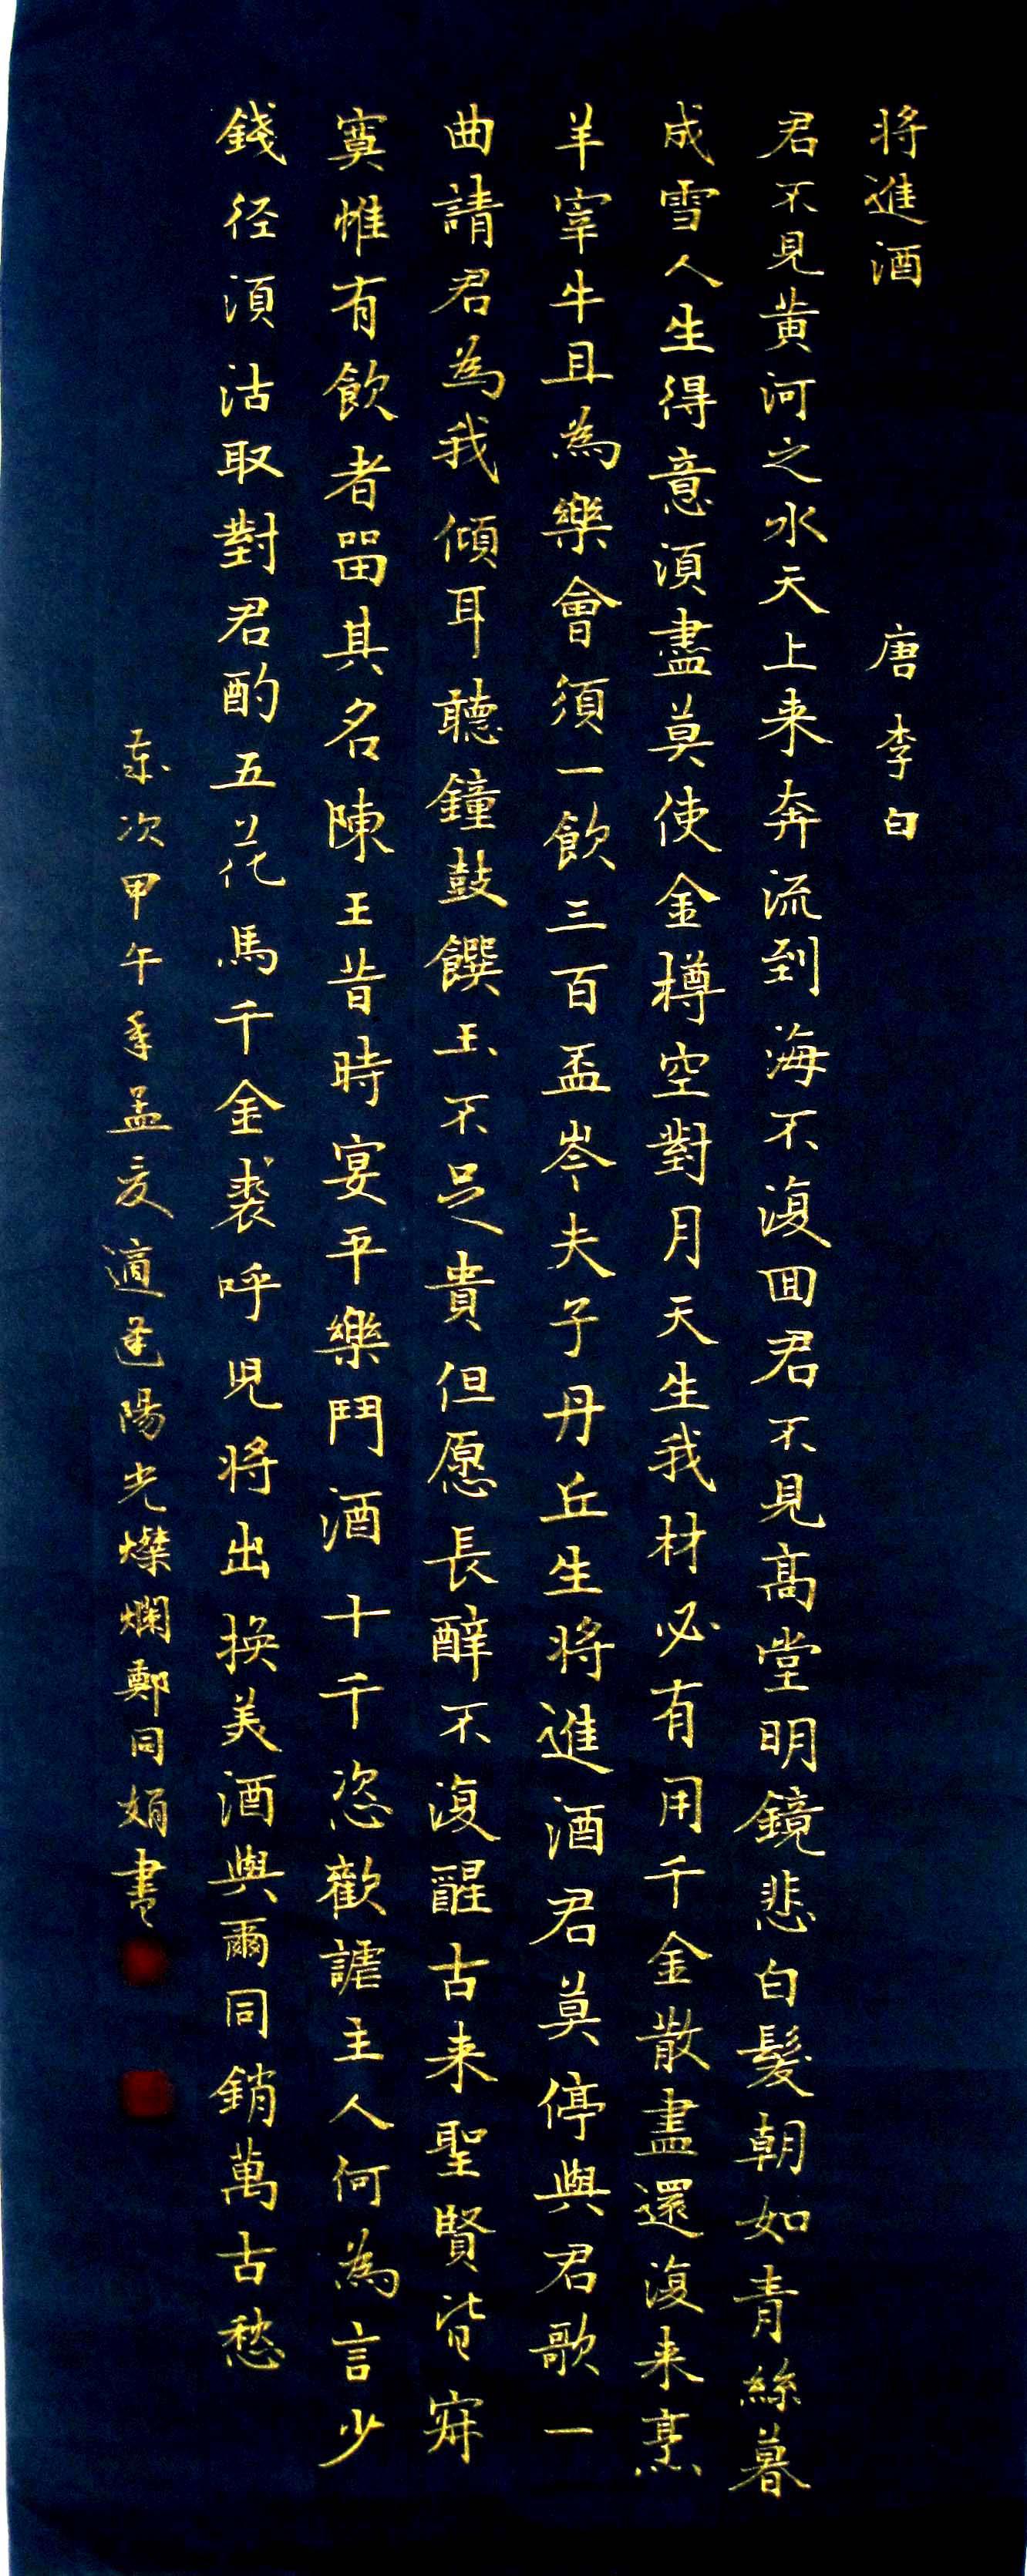 将進酒 唐 李白
君不見黄河之水天上来奔流到海不復回君不見高堂明鏡悲白髮朝如青絲暮
成雪人生得意湏盡莫使金樽空對月天生我材必有用千金散盡還復来烹
羊宰牛且為樂會須一飲三百盃岑夫子丹丘生将進酒君莫停與君歌一
曲請君為我傾耳聽鐘鼓饌玉不足貴但愿長醉不復醒古来聖賢皆寂
寞惟有飲者畱其名陳王昔時宴平樂鬥酒十千恣歡謔主人何為言少
錢径湏沽取對君酌五花馬千金裘呼児将出换美酒與爾同銷萬古愁
次甲午年孟夏適逢陽光燦爛鄭同娟書